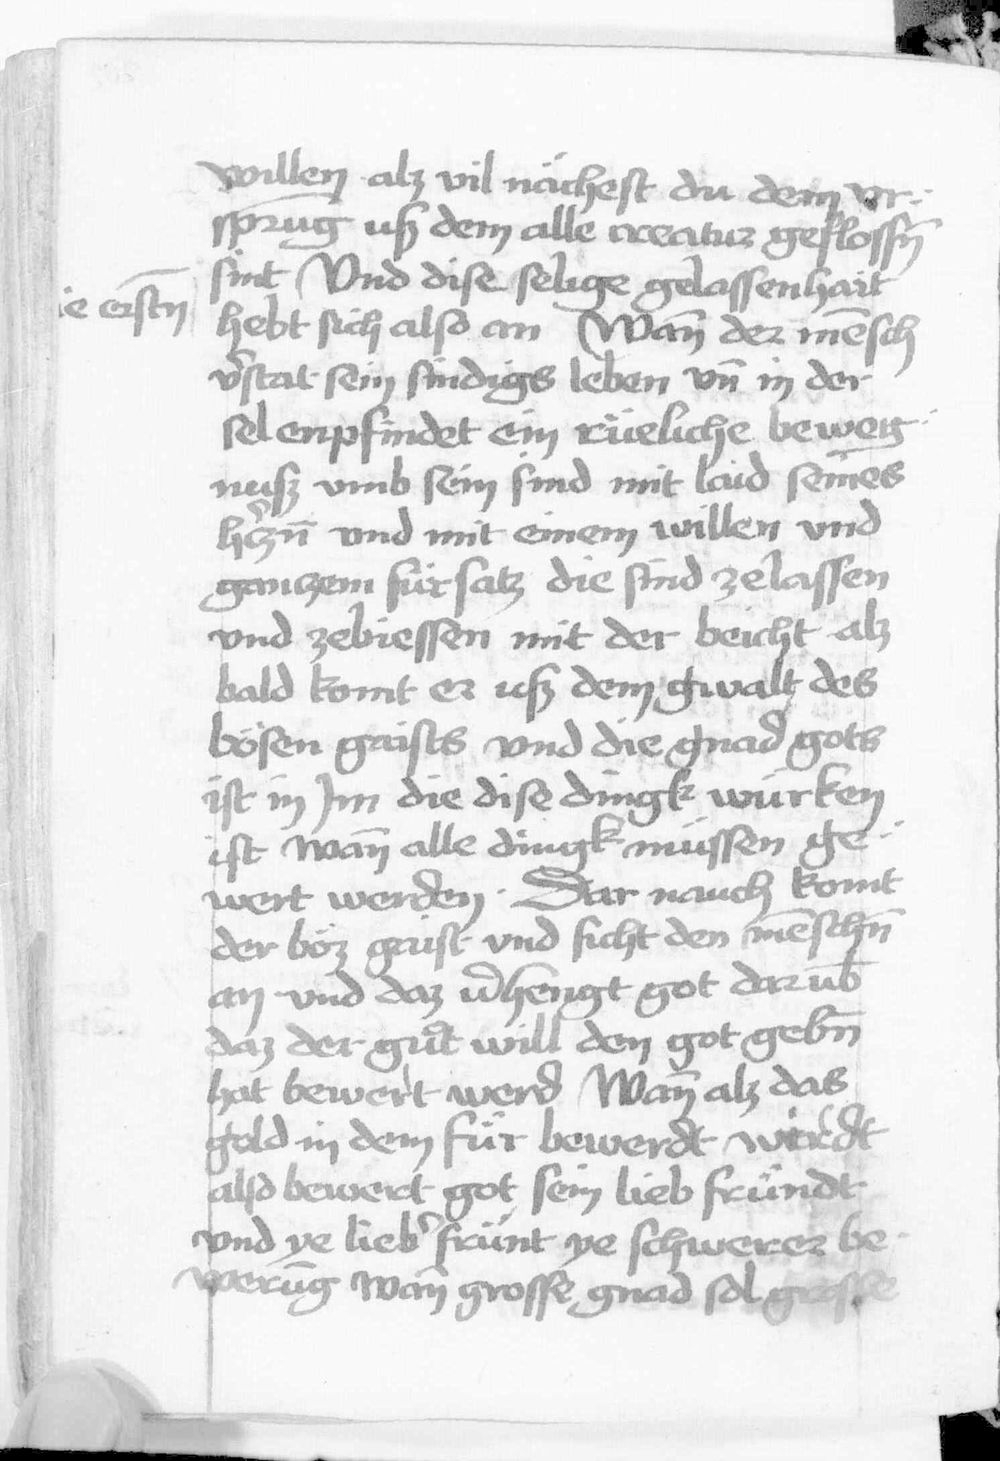 willen alz vil nächest du dem vr-
sprūg uß dem alle creatur geflossn̄
sint Vnd dise selige gelassenhait
ie erstn̄
hebt sich also an Wan̄ der mēsch
v̓stat sein sündigs leben vn̄ in der
sel enpfindet ein rüeliche beweg-
nuß vmb sein sünd mit laid seines
h̓czn̄ vnd mit einem willen vnd
ganczem fürsatz die sünd ze lassen
vnd ze biessen mit der beicht alz
bald komt er uß dem gwalt des
bösen gaists vnd die gnad gots
ist in Jm die dise dingk würken
ist wan̄ alle dingk müssen ge-
wert werden. Dar nauch komt
der böz gaist vnd sicht den mēschn̄
an vnd daz v̓hengt got darūb
daz der gůt will den got gebn̄
hat bewert werd Wan̄ alz das
gold in dem für bewerdt wirdt
also bewert got sein lieb fründt
vnd ye lieb̓ frünt ye schwerer be-
werūg wan̄ grosse gnad sol grosse